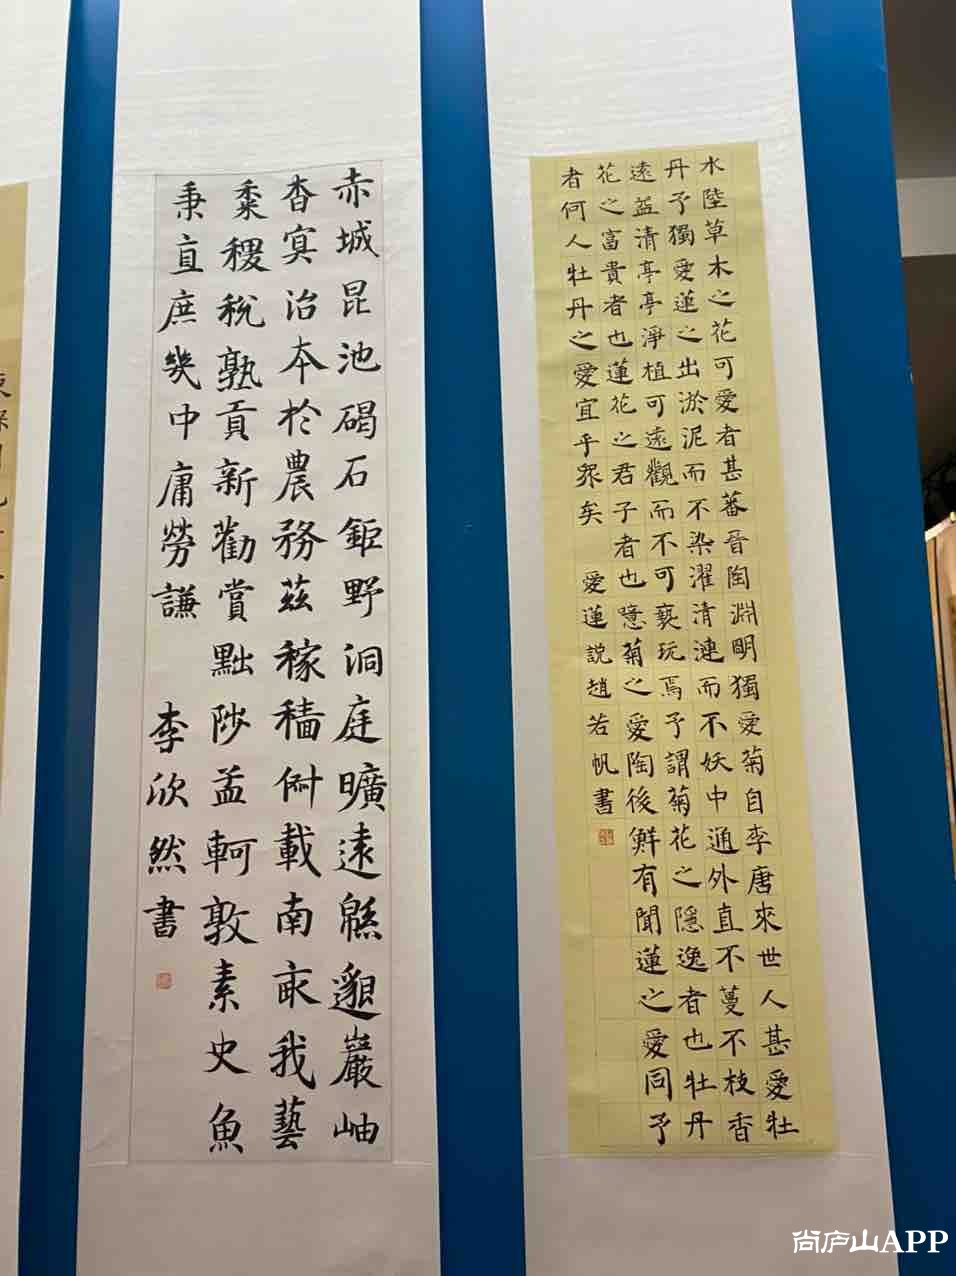 水陸草木之花可愛者甚蕃晉陶淵明獨愛菊自李唐來世人甚愛牡
丹予獨愛蓮之出淤泥而不染濯清漣而不妖中通外直不蔓不枝香
遠益清亭亭淨植可遠觀而不可褻玩焉予謂菊花之隱逸者也牡丹
花之富貴者也蓮花之君子者也噫菊之愛陶後鮮有聞蓮之愛同予
者何人牡丹之愛宜乎眾矣 愛蓮說趙若帆書
赤城昆池碣石鉅野洞庭曠遠緜邈巖岫
杳冥治本於農務茲稼穡俶載南畝我藝
黍稷稅熟貢新勸賞黜陟孟軻敦素史魚
秉直庶幾中庸勞謙 李欣然書
尚庐山APP